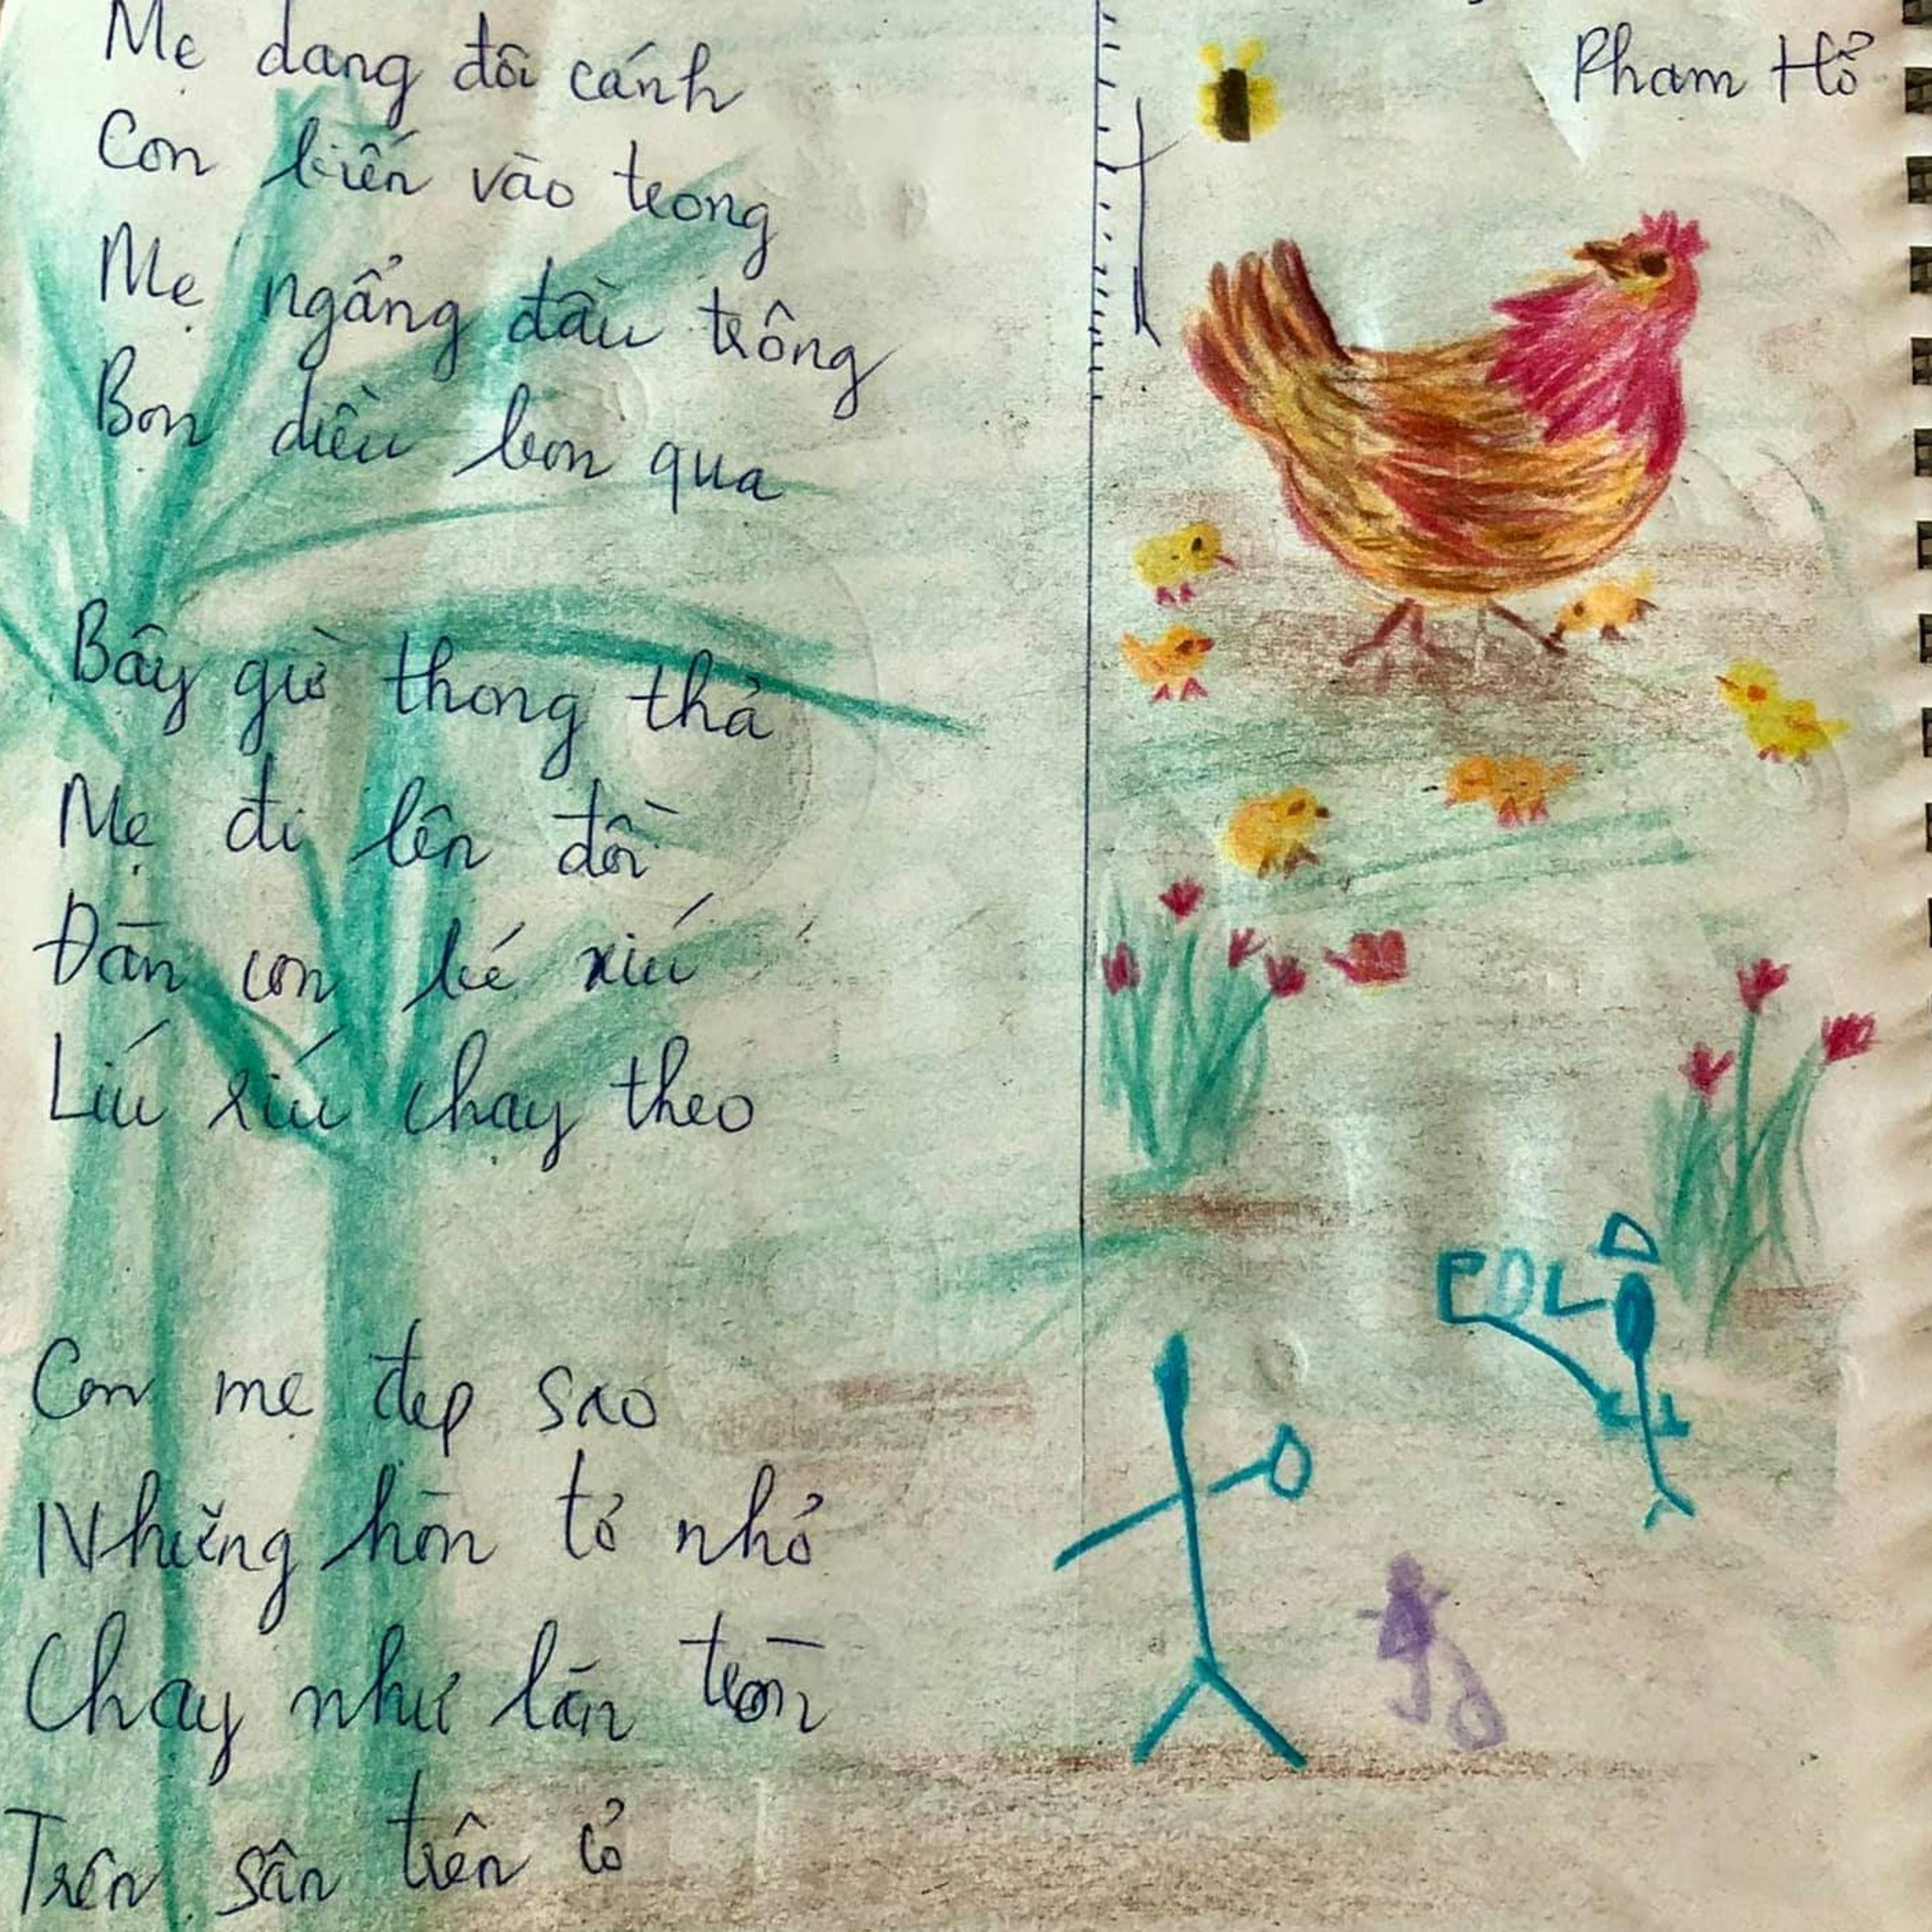 Phạm Hổ
Mẹ dang đôi cánh
Con biến vào trong
Mẹ ngẩng đầu trông
Bọn diều bọn quạ
Bây giờ thong thả
Mẹ đi lên đồi
Đàn con bé xíu
Líu xíu chạy theo
Con mẹ đẹp sao
Những hòn tơ nhỏ
Chạy như lăn tròn
Trên sân trên cỏ